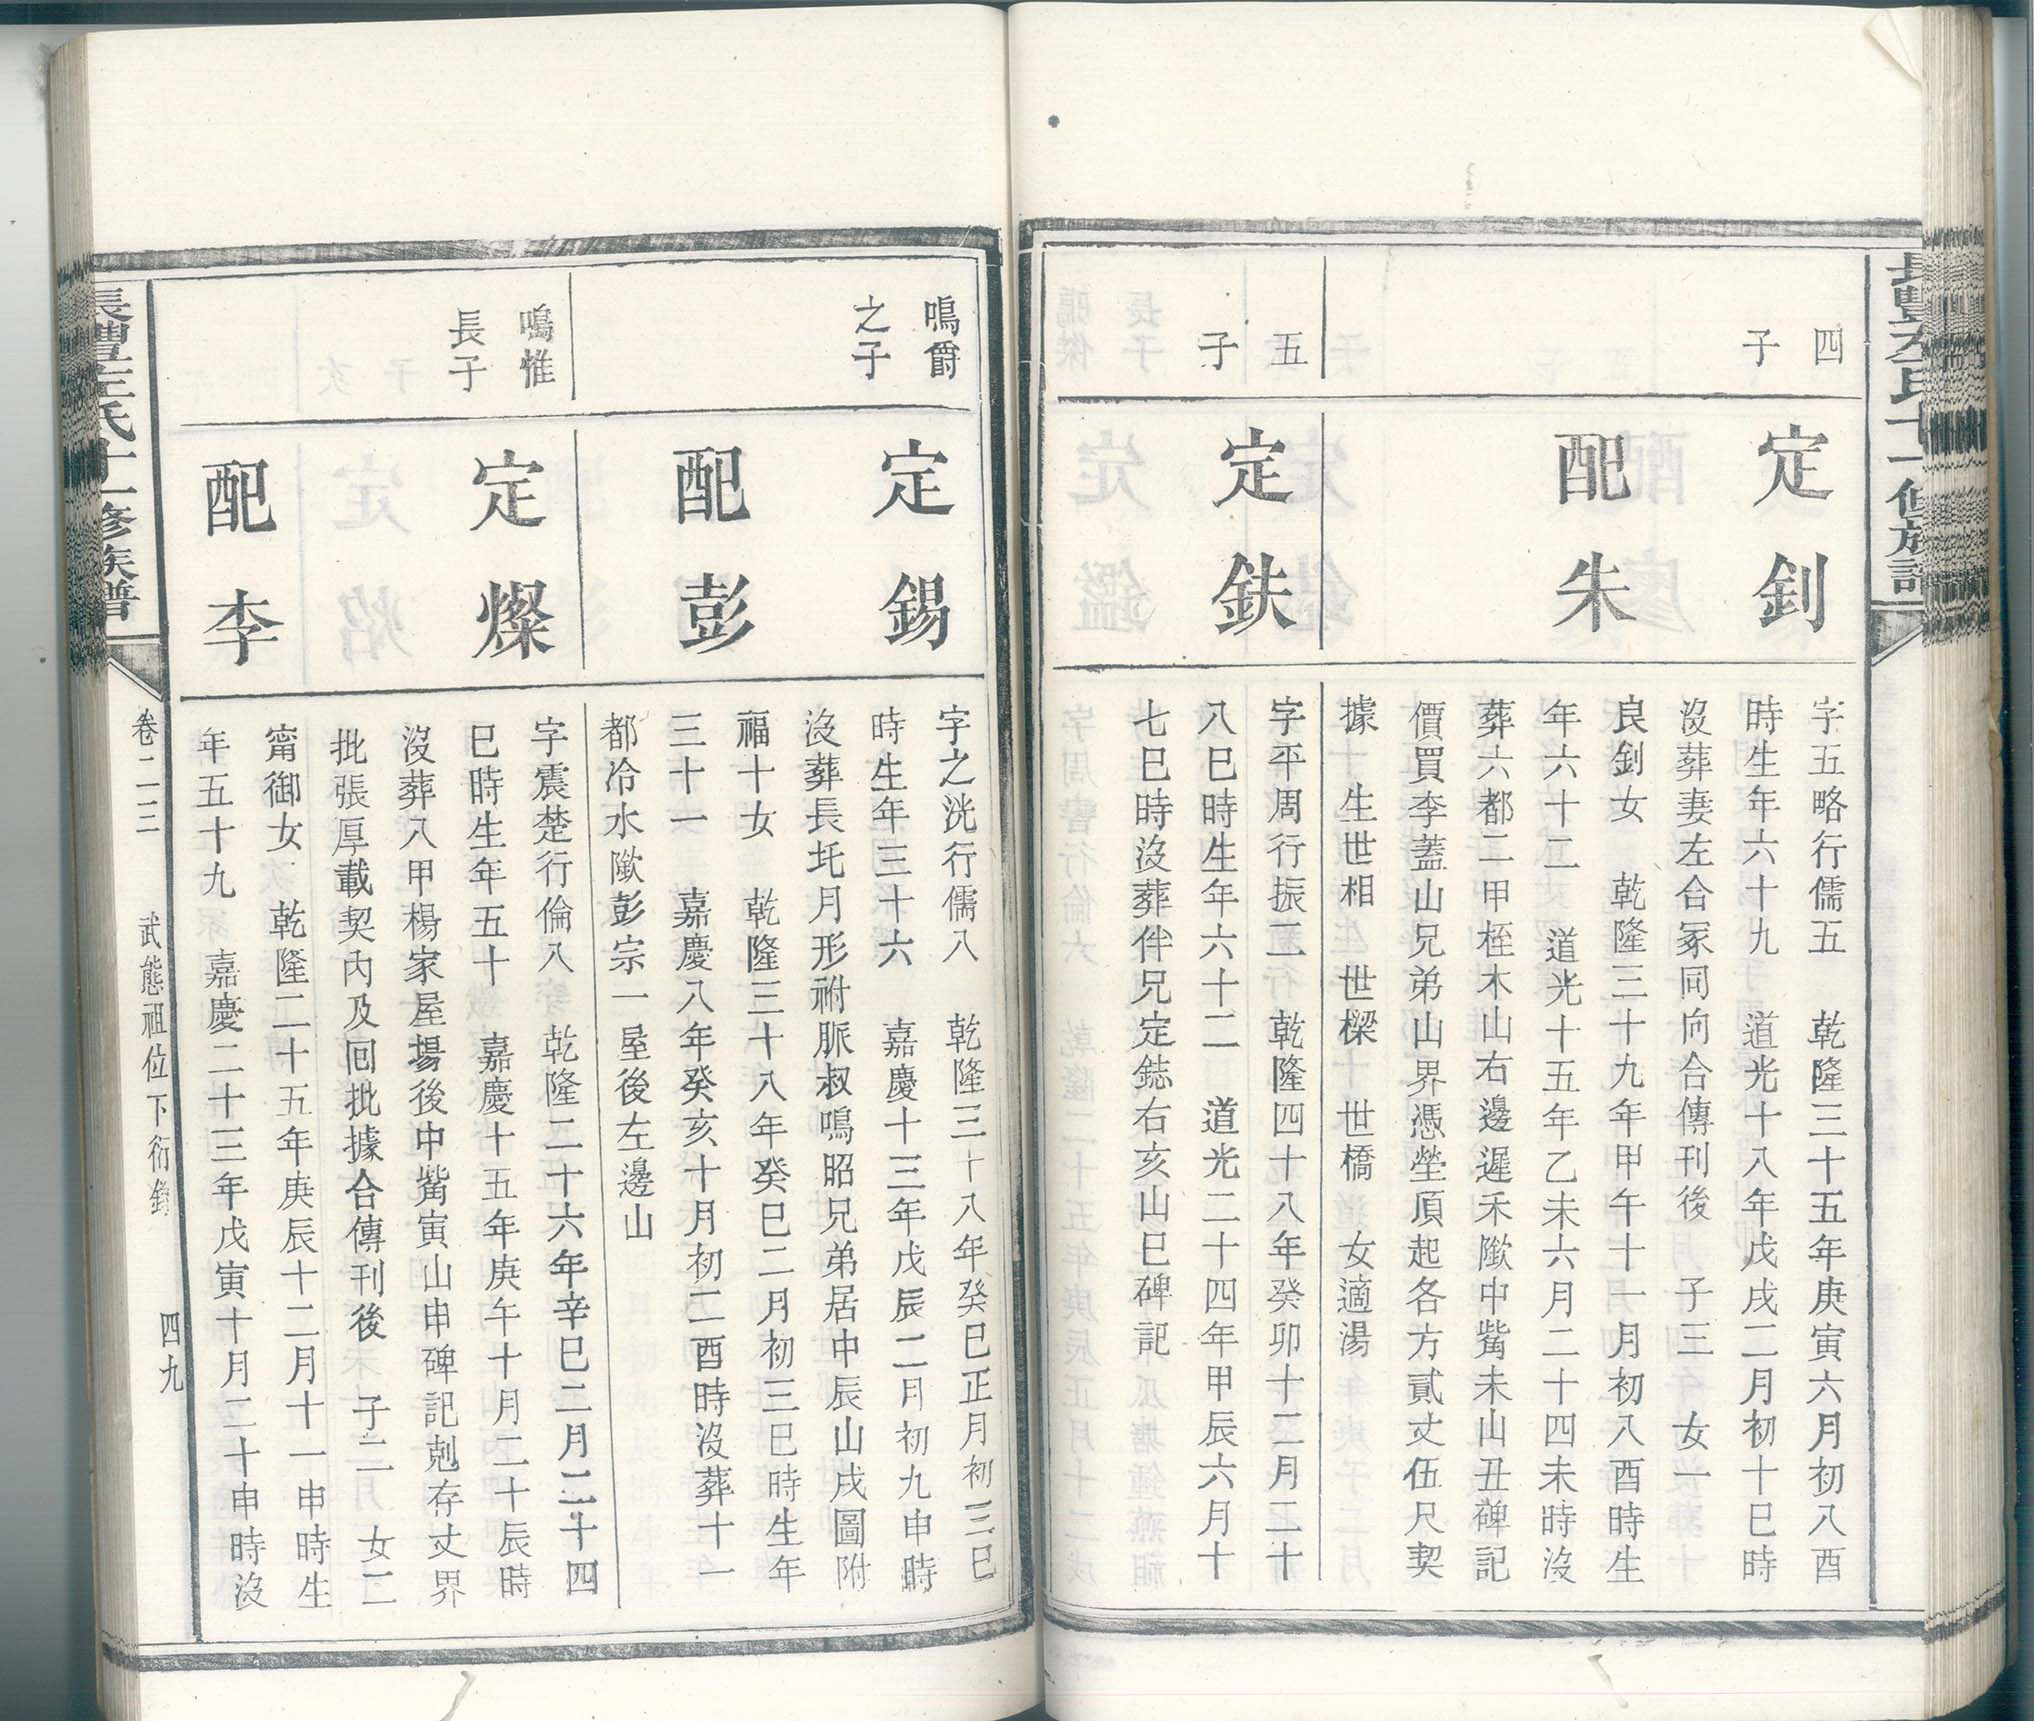 長豐左氏十一修族譜
四
子
定釗
配朱
字五略行儒五　乾隆三十五年庚寅六月初八酉
時生年六十九　道光十八年戊戌二月初十巳時
沒葬妻左合冢同向合傳刊後　子三　女一
良釗女　乾隆三十九年甲午十一月初八酉時生
年六十二　道光十五年乙未六月二十四未時沒
葬六都二甲桎木山右邊遲禾墩中觜未山丑碑記
價買李蓋山兄弟山界憑塋頂起各方貳丈伍尺契
據　生世相　世樑　世橋　女適湯
五
子
定鈇
字平周行振二　乾隆四十八年癸卯十二月二十
八巳時生年六十二　道光二十四年甲辰六月十
七巳時沒葬伴兄定鋕右亥山巳碑記
鳴爵
之子
定錫
配彭
字之洸行儒八　乾隆三十八年癸巳正月初三巳
時生年三十六　嘉慶十三年戊辰二月初九申時
沒葬長圫月形祔脈叔鳴昭兄弟居中辰山戌圖附
福十女　乾隆三十八年癸巳二月初三巳時生年
三十一　嘉慶八年癸亥十月初二酉時沒葬十一
都冷水墩彭宗一屋後左邊山
鳴惟
長子
定燦
配李
字震楚行倫八　乾隆二十六年辛巳二月二十四
巳時生年五十　嘉慶十五年庚午十月二十辰時
沒葬八甲楊家屋場後中觜寅山申碑記剋存丈界
批張厚載契內及回批據合傳刊後　子二　女二
甯御女　乾隆二十五年庚辰十二月十一申時生
年五十九　嘉慶二十三年戊寅十月二十申時沒
長豐左氏十一修族譜
卷二三
武態祖位下衍錄
四九